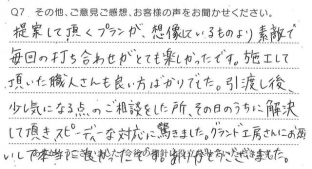 Q7 その他、ご意見ご感想、お客様の声をお聞かせください。
提案して頂くプランが、想像しているものより素敵で
毎回の打ち合わせがとても楽しかったです。施工して
頂いた職人さんも良い方ばかりでした。引渡し後、
少し気になる点のご相談をした所、その日のうちに解決
して頂き、スピーディーな対応に驚きました。グランド工房さんにお願
いして本当に良かったです。ありがとうございました。